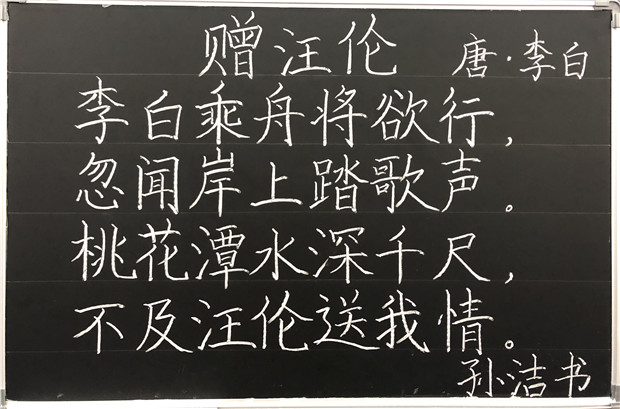 赠汪伦 唐·李白
李白乘舟将欲行，
忽闻岸上踏歌声。
桃花潭水深千尺，
不及汪伦送我情。
孙洁书